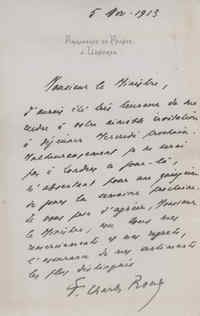 5 Nov - 1913
AMBASSADE DE FRANCE
À LONDRES
Monsieur le Ministre,
J'aurais été très heureux de me
rendre à votre aimable invitation
à déjeuner Vendredi prochain.
Malheureusement je ne serai
pas à Londres ce jour-là,
m'absentant pour une quinzaine
de jours la semaine prochaine.
Je vous prie d'agréer, Monsieur
le Ministre, avec tous mes
remerciements et mes regrets,
l'assurance de mes sentiments
les plus distingués
F. Charles Roux